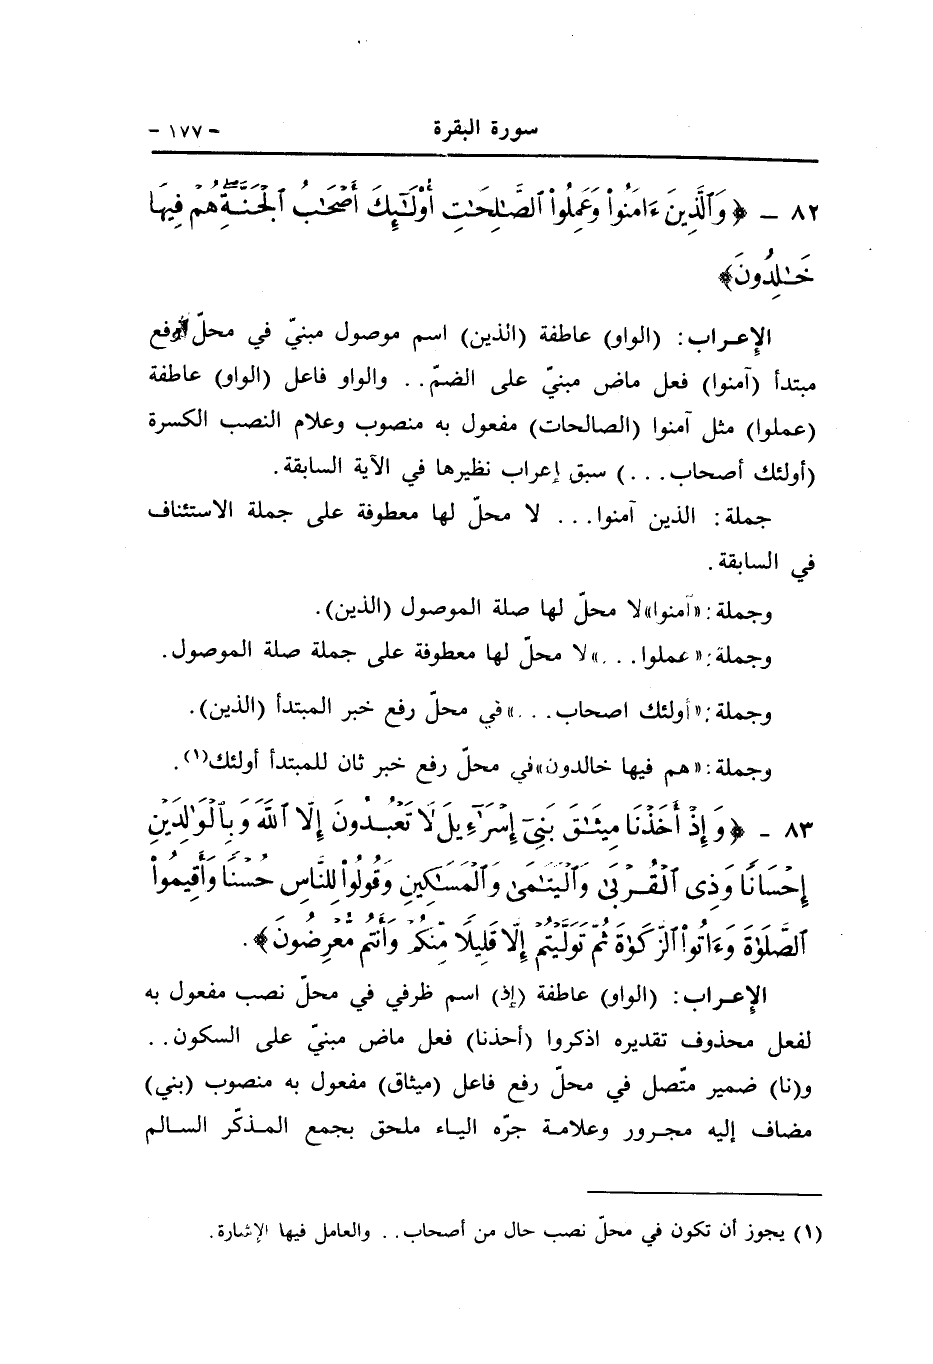 سورة البقرة - ١٧٧ -
٨٢ - ﴿ وَٱلَّذِينَ ءَامَنُوا۟ وَعَمِلُوا۟ ٱلصَّـٰلِحَـٰتِ أُو۟لَـٰٓئِكَ أَصْحَـٰبُ ٱلْجَنَّةِ ۖ هُمْ فِيهَا
خَـٰلِدُونَ﴾
الإعـراب: (الواو) عاطفة (الذين) اسم موصول مبنيّ في محلّ رفع
مبتدأ (آمنوا) فعل ماض مبنيّ على الضمّ.. والواو فاعل (الواو) عاطفة
(عملوا) مثل آمنوا (الصالحات) مفعول به منصوب وعلام النصب الكسرة
(أولئك أصحاب...) سبق إعراب نظيرها في الآية السابقة.
جملة: الذين آمنوا... لا محلّ لها معطوفة على جملة الاستئناف
في السابقة.
وجملة:«آمنوا»لا محلّ لها صلة الموصول (الذين).
وجملة:«عملوا...»لا محلّ لها معطوفة على جملة صلة الموصول.
وجملة:«أولئك اصحاب...»في محلّ رفع خبر المبتدأ (الذين).
وجملة:«هم فيها خالدون»في محلّ رفع خبر ثان للمبتدأ أولئك(١).
٨٣ - ﴿ وَإِذْ أَخَذْنَا مِيثَـٰقَ بَنِىٓ إِسْرَٰٓءِيلَ لَا تَعْبُدُونَ إِلَّا ٱللَّهَ وَبِٱلْوَٰلِدَيْنِ
إِحْسَانًا وَذِى ٱلْقُرْبَىٰ وَٱلْيَتَـٰمَىٰ وَٱلْمَسَـٰكِينِ وَقُولُوا۟ لِلنَّاسِ حُسْنًا وَأَقِيمُوا۟
ٱلصَّلَوٰةَ وَءَاتُوا۟ ٱلزَّكَوٰةَ ثُمَّ تَوَلَّيْتُمْ إِلَّا قَلِيلًا مِّنكُمْ وَأَنتُم مُّعْرِضُونَ﴾.
الإعـراب: (الواو) عاطفة (إذ) اسم ظرفي في محلّ نصب مفعول به
لفعل محذوف تقديره اذكروا (أحذنا) فعل ماض مبنيّ على السكون..
و(نا) ضمير متّصل في محلّ رفع فاعل (ميثاق) مفعول به منصوب (بني)
مضاف إليه مجرور وعلامة جرّه الياء ملحق بجمع المذكّر السالم
(١) يجوز أن تكون في محلّ نصب حال من أصحاب.. والعامل فيها الإشارة.